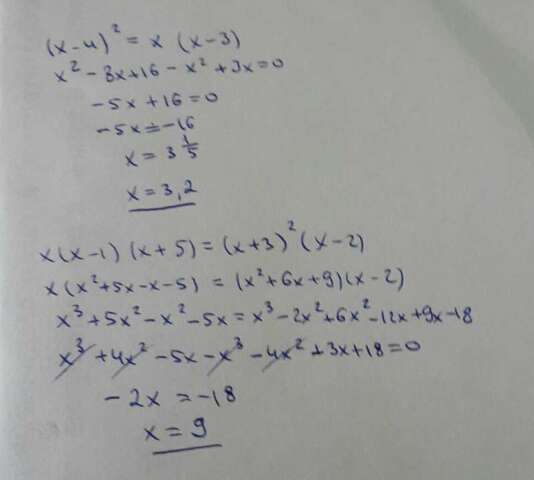 (x-4)² = x (x-3)
x² - 8x+16 - x² + 3x=0
-5x + 16 = 0
-5x = -16
x = 3 1/5
x = 3,2
x(x-1)(x+5) = (x+3)²(x-2)
x(x²+5x-x-5) = (x²+6x+9)(x-2)
x³+5x²-x²-5x = x³-2x²+6x²-12x+9x-18
x³+4x²-5x-x³-4x²+3x+18=0
-2x = -18
x = 9